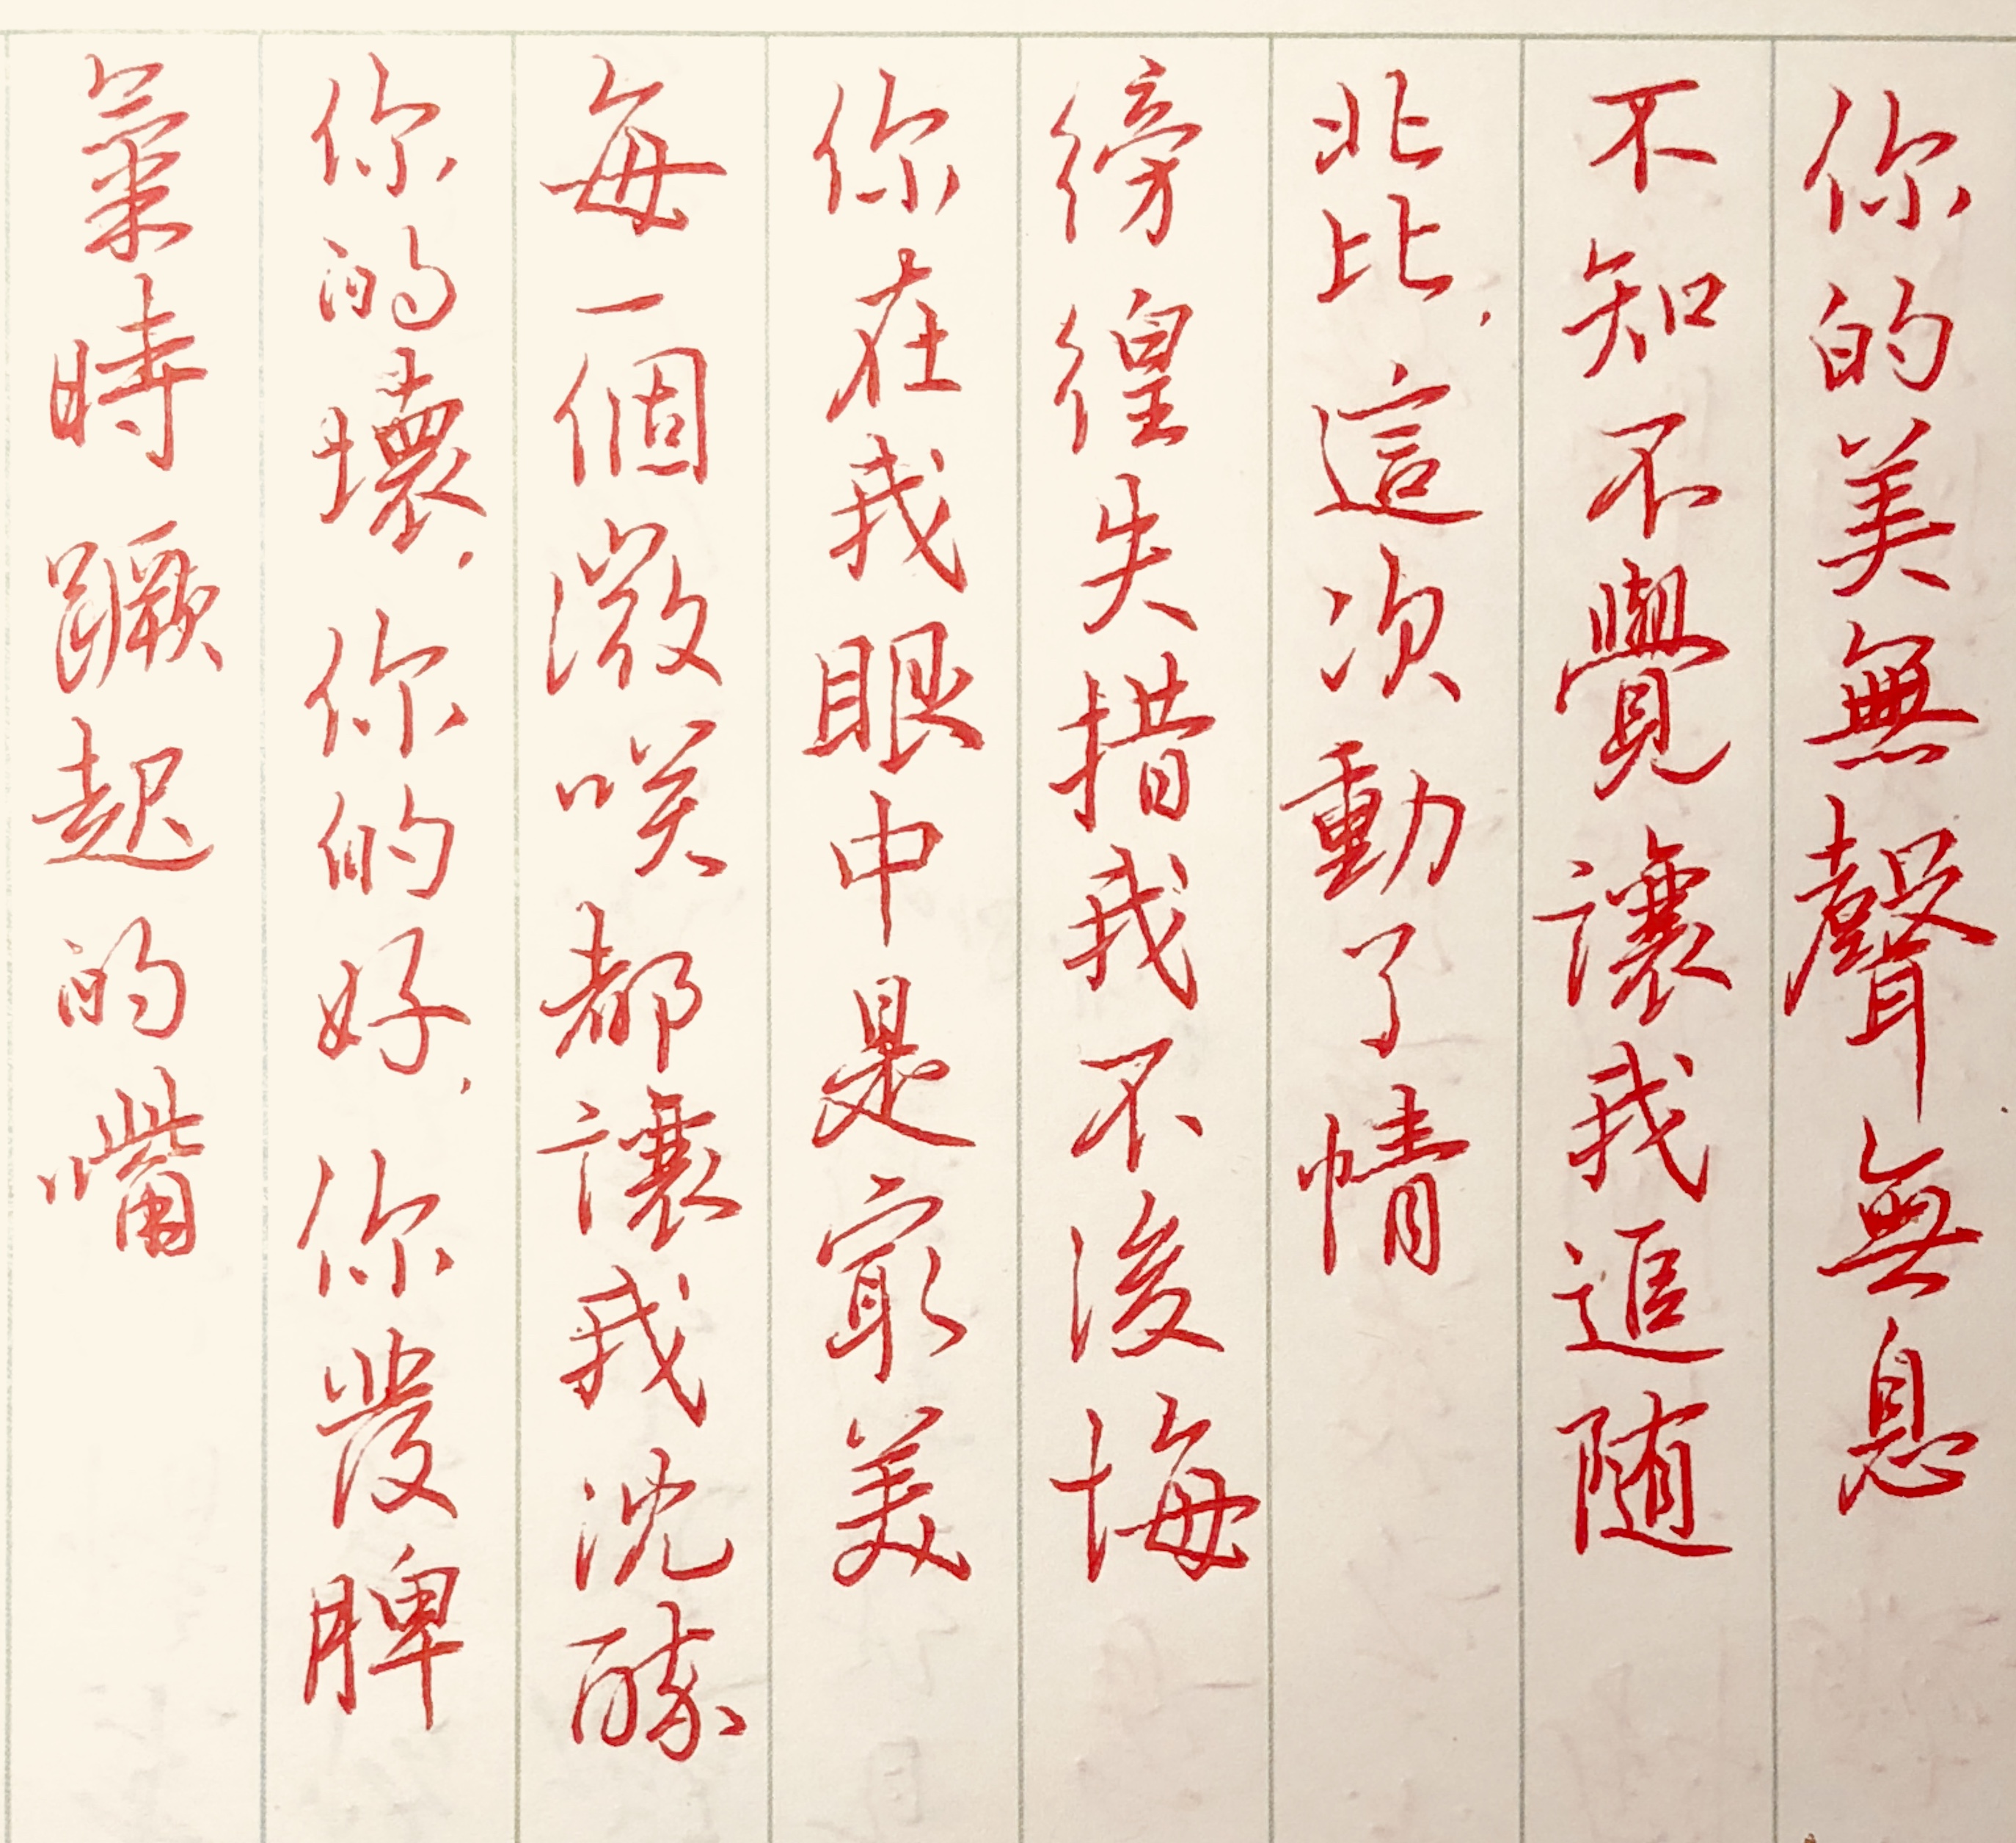 你的美無聲無息
不知不覺讓我追随
北比,這次動了情
徬徨失措我不後悔
你在我眼中是最美
每一個微咲都讓我沈醉
你的壞,你的好,你發脾
氣時蹶起的嘴